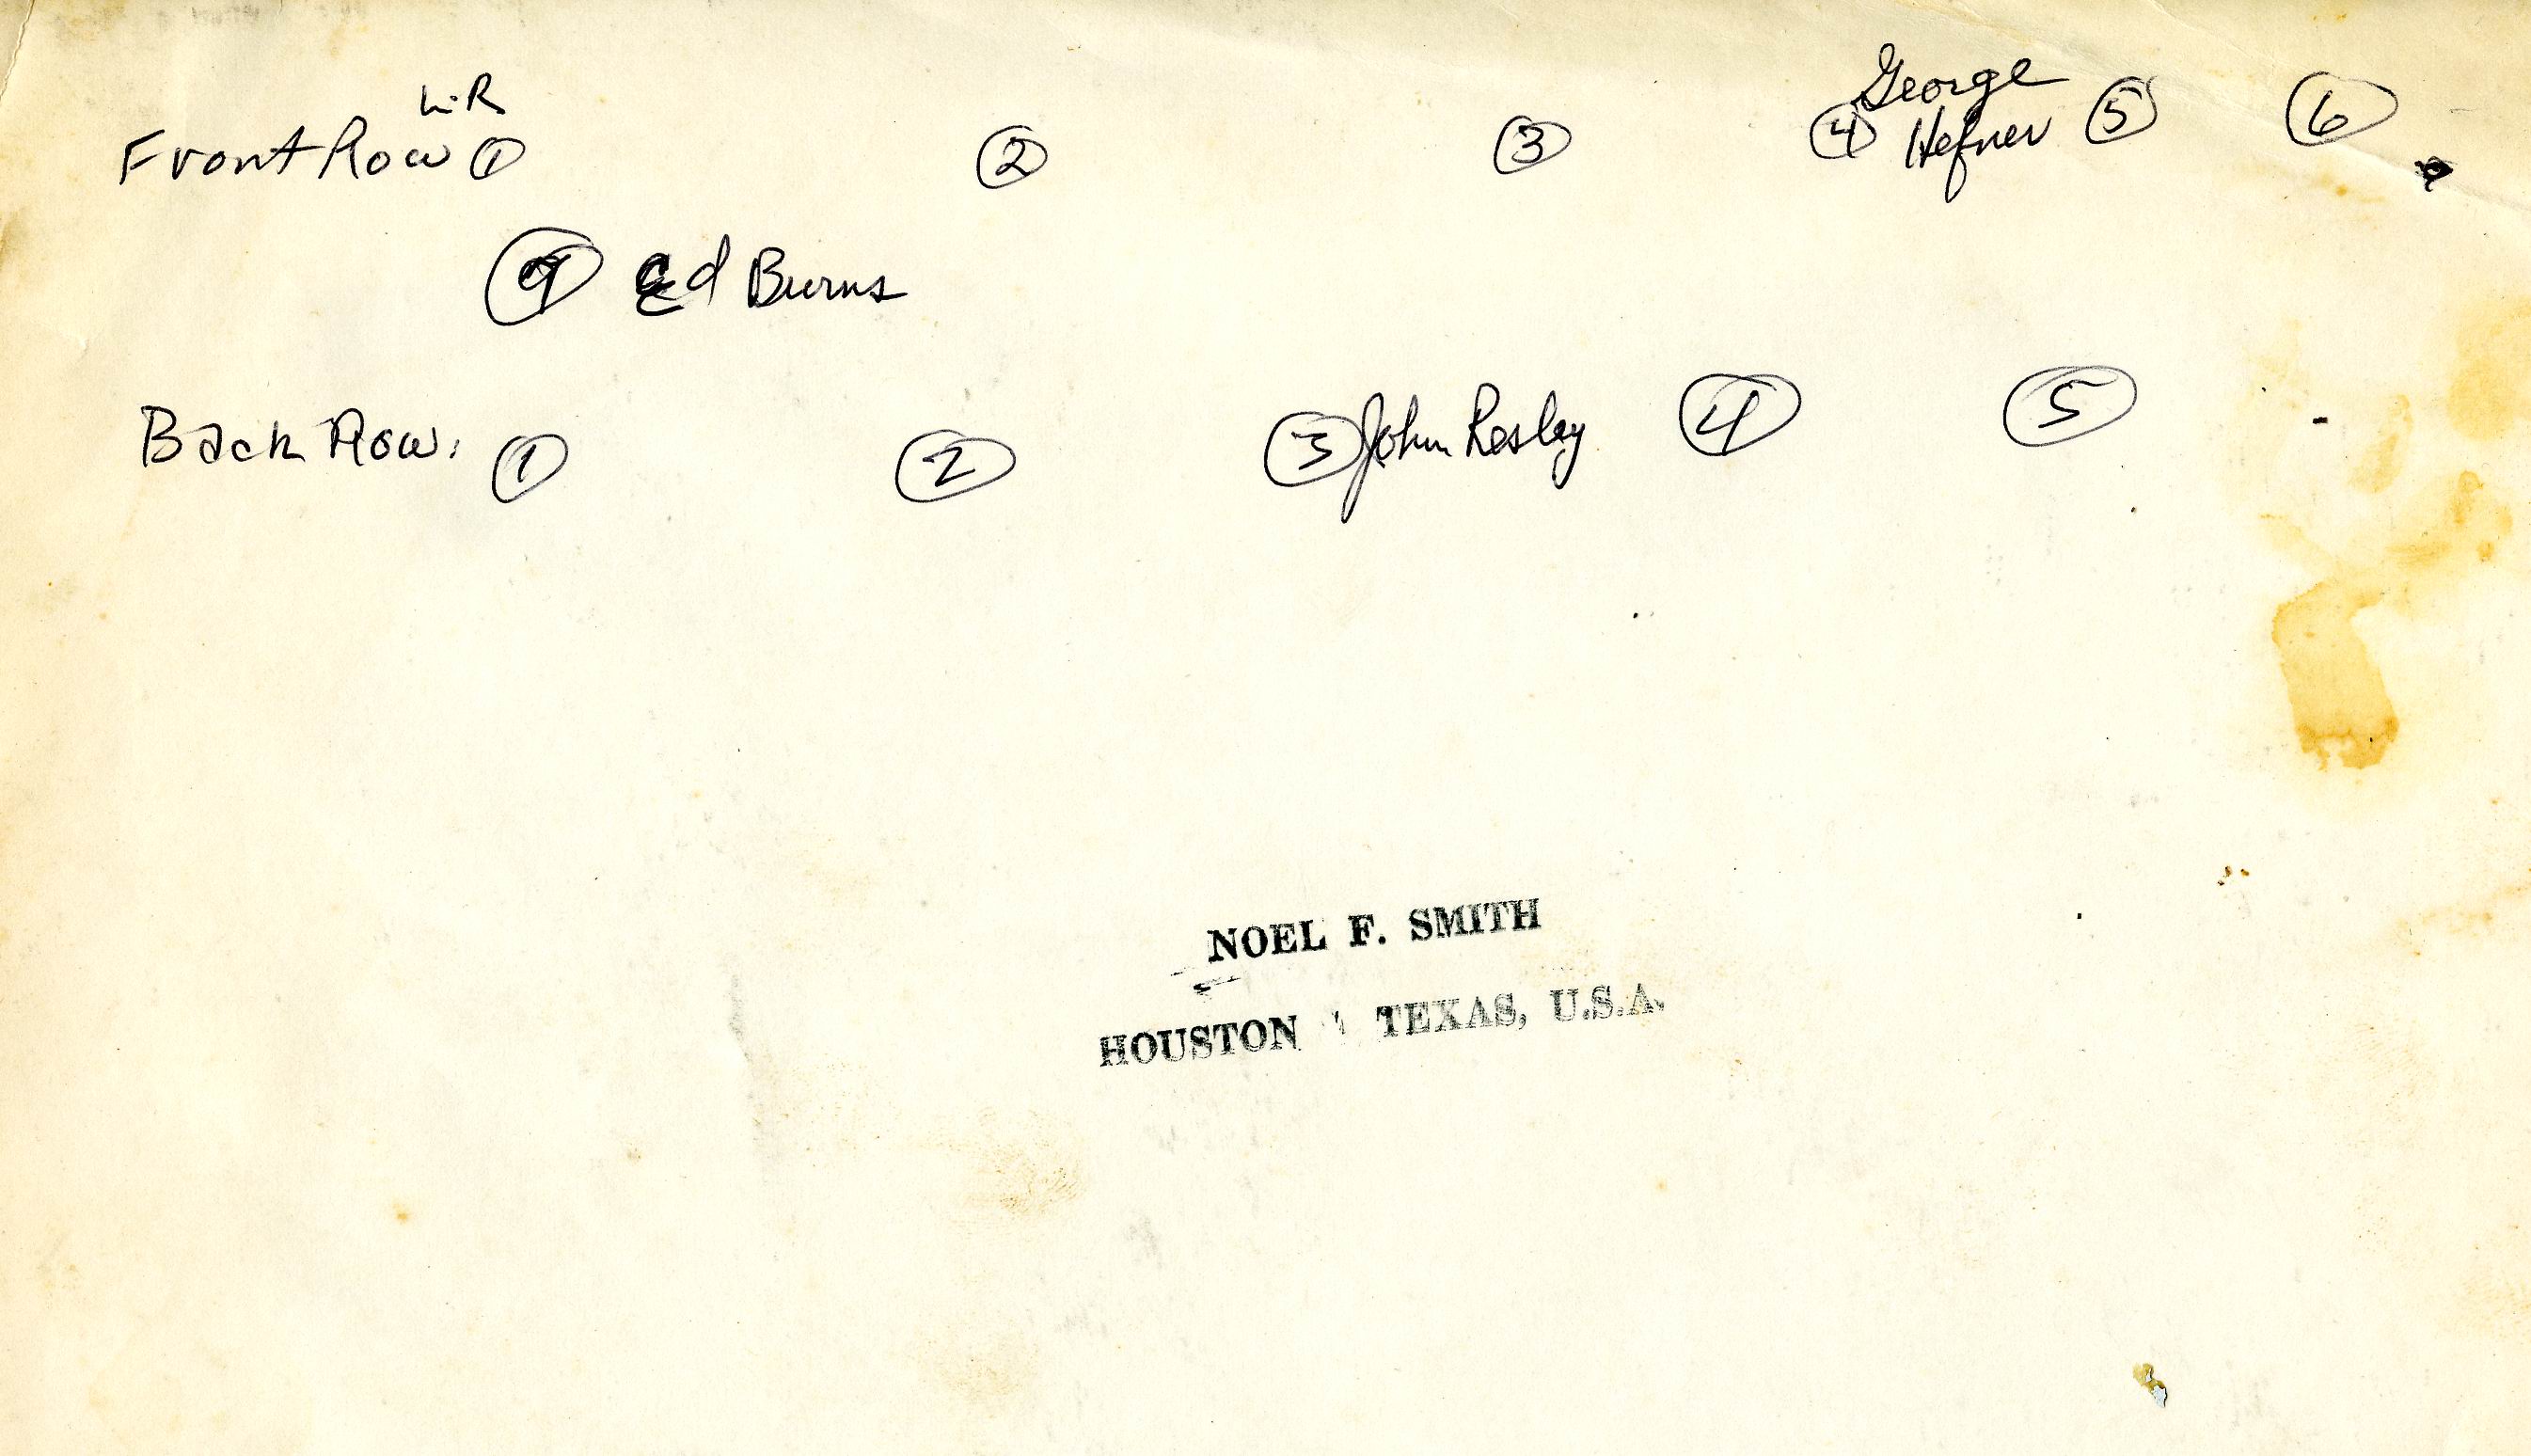 L-R George
Front Row ① ② ③ ④ Hefner ⑤ ⑥
Ed Burns
Back Row: ① ② ③ John Resley ④ ⑤
NOEL F. SMITH
HOUSTON TEXAS, U.S.A.